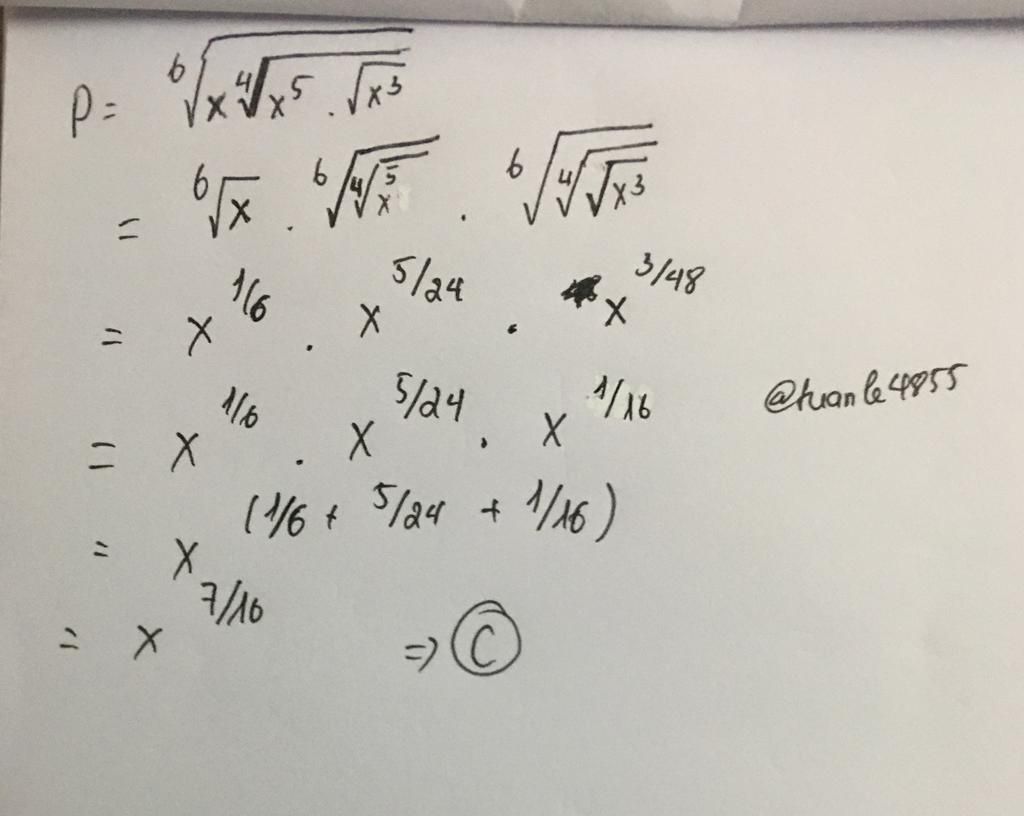 P = ⁶√(x ⁴√(x⁵ . √(x³)))
= ⁶√x . ⁶√(⁴√(x⁵)) . ⁶√(⁴√(√(x³)))
= x^1/6 . x^5/24 . x^3/48
= x^1/6 . x^5/24 . x^1/16
@tuanle4855
= x^(1/6 + 5/24 + 1/16)
= x^7/16 => C